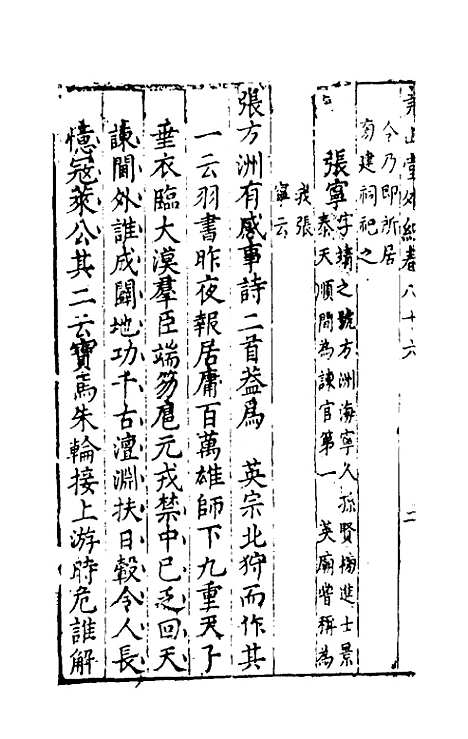 堯山堂外紀卷八十六　二
令乃即所居
有建祠祀之
張寧字靖之號方洲海寧人孫賢榜進士景
泰天順間為諫官第一　英廟嘗稱為
我張
寧云
張方洲有感事詩二首葢爲　英宗北狩而作其
一云羽書昨夜報居庸百萬雄師下九重天子
垂衣臨大漠羣臣端笏扈元戎禁中已乏回天
諫閫外誰成闢地功千古澶淵扶日轂令人長
憶冦萊公其二云寶馬朱輪接上游時危誰解